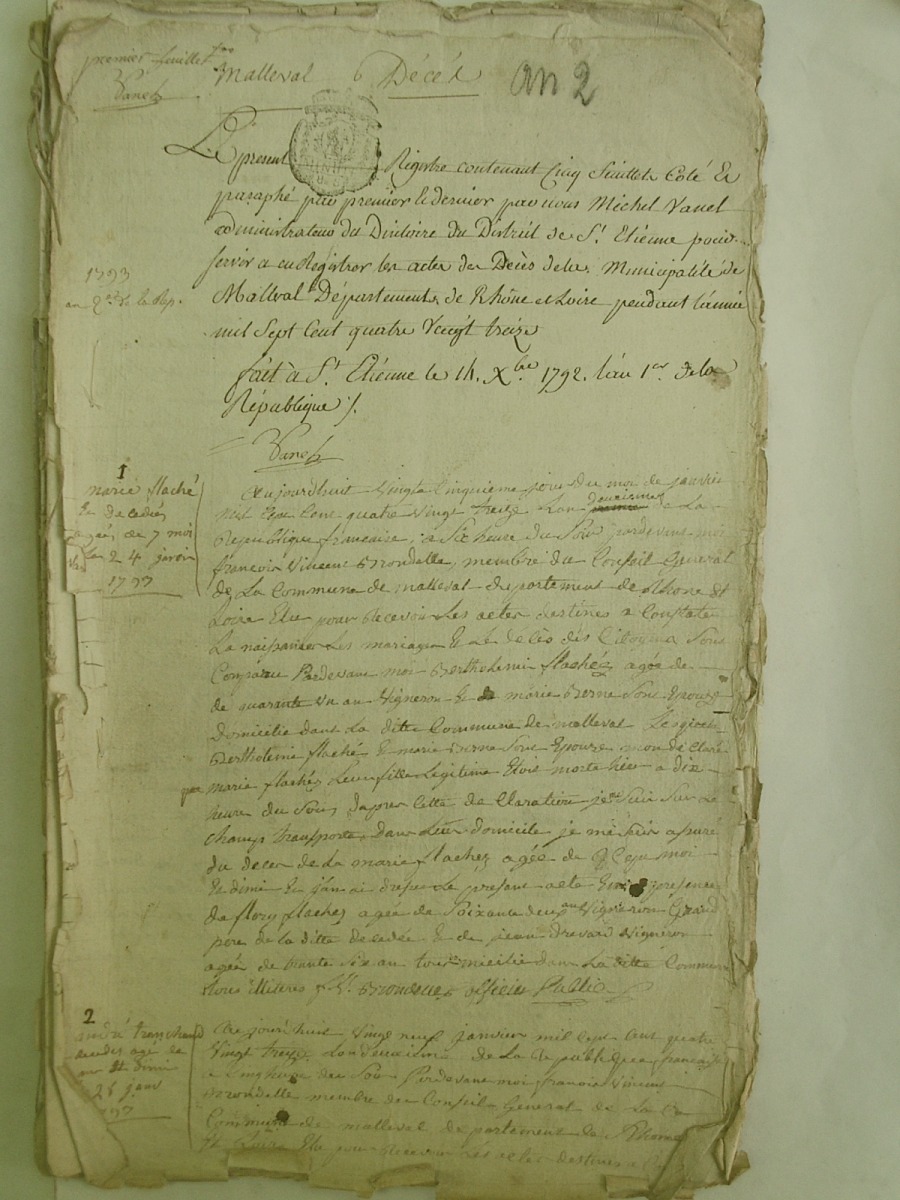 premier feuillet
Vanel
Malleval 6 Décés
an 2
Le present Registre contenant Cinq feuillets Coté Et
paraphé par premier & dernier par nous Michel Vanel
administrateur du Diréctoire du District de St. Etienne pour
servir a enRégistrer les actes des Decès de la Municipalité de
Malleval Département de Rhône et Loire pendant l'année
mil Sept Cent quatre Vingt treize
fait à St. Etienne le 14. Xbre 1792. l'an 1er de la
République /.
Vanel
1793
an 2 de la Rep.
1
marie flaché
de
agée de 7 moi
24
Aujourdhuit Vingt Cinquieme jour du moi de janvier
mil Sept Cent quatre Vingt treize Lan deuxisme de La
Republique francaise, a Six heure du Soir pardevans moi
francois Vincent Brondelle, membre du Conseil General
de La Commune de malleval departement de Rhone Et
Loire Elu pour Recevoir Les actes destinés a Constaté
La naissance Les mariages Et Le deces des Citoyens Sont
Comparu Pardevans moi Bertholemi flachéz agée de
de quarante un an Vigneron Et marie Berne Sont Epouze
domicilie dans La ditte Commune de malleval
Bertholemi flaché & marie Berne Sont Epouze mon dé Claré
que marie flachéz Leur fille Legitime Etoit morte hier a dix
heure du Soir, dapres Cette de Claration je me Suis Sur Le
Champ transporté dans Leur domicile je me Suis assuré
du deces de La marie flachéz agée de Sept moi
Et dimi Et j'an ai dressé Le present acte En presence
de flory flachez agée de Soixante deux an Vigneron Grand
pere de la ditte decedée Et de jean Vigneron
agée de trante Six an tous domicilie dans La ditte Commune
tous illiteres fr. V. Brondelle officier Public
2
andré tranchand
decedez age de
dimi
Au jourdhuit Vingt neuf janvier mil Sept Cent quatre
Vingt treize Lan deuxisme de La Republique francaise
a Cinq heure du Soir Pardevant moi francois Vincent
Brondelle membre du Conseil General de La
Commune de malleval departement de Rhone
Et Loire Elu pour Recevoir Les actes destinés a